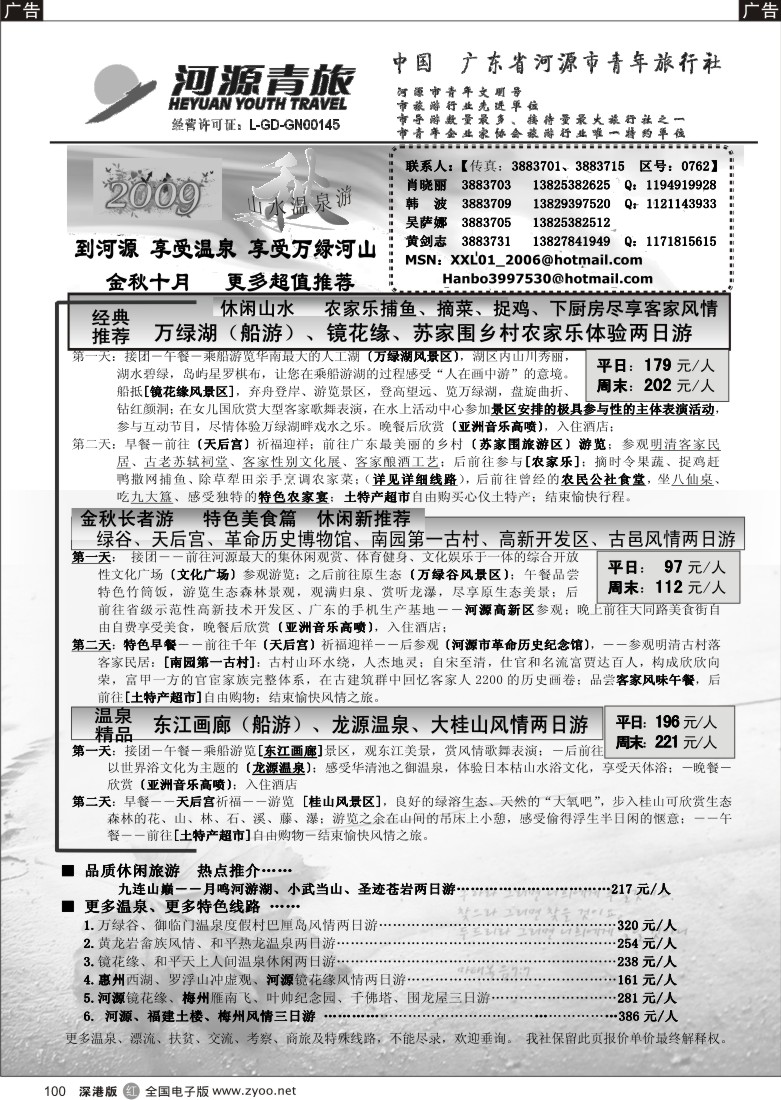 广告
广告
河源青旅
HEYUAN YOUTH TRAVEL
经营许可证：L-GD-GN00145
中国 广东省河源市青年旅行社
河源市青年文明号
市旅游行业先进单位
市导游数量最多、接待量最大旅行社之一
市青年企业家协会旅游行业唯一特约单位
2009
秋
山水温泉游
到河源 享受温泉 享受万绿河山
金秋十月 更多超值推荐
联系人：【传真：3883701、3883715 区号：0762】
肖晓丽 3883703 13825382625 Q：1194919928
韩 波 3883709 13829397520 Q：1121143933
吴萨娜 3883705 13825382512
黄剑志 3883731 13827841949 Q：1171815615
MSN：XXL01_2006@hotmail.com
Hanbo3997530@hotmail.com
经典
推荐
休闲山水 农家乐捕鱼、摘菜、捉鸡、下厨房尽享客家风情
万绿湖（船游）、镜花缘、苏家围乡村农家乐体验两日游
平日：179 元/人
周末：202 元/人
第一天：接团－午餐－乘船游览华南最大的人工湖〔万绿湖风景区〕，湖区内山川秀丽，
湖水碧绿，岛屿星罗棋布，让您在乘船游湖的过程感受“人在画中游”的意境。
船抵[镜花缘风景区]，弃舟登岸、游览景区，登高望远、览万绿湖，盘旋曲折、
钻红颜洞；在女儿国欣赏大型客家歌舞表演，在水上活动中心参加景区安排的极具参与性的主体表演活动，
参与互动节目，尽情体验万绿湖畔戏水之乐。晚餐后欣赏〔亚洲音乐高喷〕，入住酒店；
第二天：早餐－前往〔天后宫〕祈福迎祥；前往广东最美丽的乡村〔苏家围旅游区〕游览；参观明清客家民
居、古老苏轼祠堂、客家性别文化展、客家酿酒工艺；后前往参与[农家乐]；摘时令果蔬、捉鸡赶
鸭撒网捕鱼、除草犁田亲手烹调农家菜；(详见详细线路)，后前往曾经的农民公社食堂，坐八仙桌、
吃九大簋、感受独特的特色农家宴；土特产超市自由购买心仪土特产；结束愉快行程。
金秋长者游 特色美食篇 休闲新推荐
绿谷、天后宫、革命历史博物馆、南园第一古村、高新开发区、古邑风情两日游
平日： 97 元/人
周末：112 元/人
第一天： 接团－－前往河源最大的集休闲观赏、体育健身、文化娱乐于一体的综合开放
性文化广场〔文化广场〕参观游览；之后前往原生态〔万绿谷风景区〕；午餐品尝
特色竹筒饭，游览生态森林景观，观满归泉、赏听龙瀑，尽享原生态美景；后
前往省级示范性高新技术开发区、广东的手机生产基地－－河源高新区参观；晚上前往大同路美食街自
由自费享受美食，晚餐后欣赏〔亚洲音乐高喷〕，入住酒店；
第二天：特色早餐－－前往千年〔天后宫〕祈福迎祥－－后参观〔河源市革命历史纪念馆〕，－－参观明清古村落
客家民居：[南园第一古村]；古村山环水绕，人杰地灵；自宋至清，仕官和名流富贾达百人，构成欣欣向
荣，富甲一方的官宦家族完整体系，在古建筑群中回忆客家人 2200 的历史画卷；品尝客家风味午餐，后
前往[土特产超市]自由购物；结束愉快风情之旅。
温泉
精品
东江画廊（船游）、龙源温泉、大桂山风情两日游
平日：196元/人
周末：221 元/人
第一天：接团－午餐－乘船游览[东江画廊]景区，观东江美景，赏风情歌舞表演；－后前往
以世界浴文化为主题的〔龙源温泉〕；感受华清池之御温泉，体验日本枯山水浴文化，享受天体浴；－晚餐－
欣赏〔亚洲音乐高喷〕；入住酒店
第二天：早餐－－天后宫祈福－－游览 [桂山风景区]，良好的绿溶生态、天然的“大氧吧”，步入桂山可欣赏生态
森林的花、山、林、石、溪、藤、瀑；游览之余在山间的吊床上小憩，感受偷得浮生半日闲的惬意；－－午
餐－－前往[土特产超市]自由购物－结束愉快风情之旅。
■ 品质休闲旅游 热点推介……
九连山巅－－月鸣河游湖、小武当山、圣迹苍岩两日游……………………………217 元/人
■ 更多温泉、更多特色线路 ……
1. 万绿谷、御临门温泉度假村巴厘岛风情两日游……………………………………………320 元/人
2. 黄龙岩畲族风情、和平热龙温泉两日游……………………………………………………254 元/人
3. 镜花缘、和平天上人间温泉休闲两日游……………………………………………………238 元/人
4. 惠州西湖、罗浮山冲虚观、河源镜花缘风情两日游………………………………………161 元/人
5. 河源镜花缘、梅州雁南飞、叶帅纪念园、千佛塔、围龙屋三日游………………………281 元/人
6. 河源、福建土楼、梅州风情三日游 ………………………………………………………386 元/人
更多温泉、漂流、扶贫、交流、考察、商旅及特殊线路，不能尽录，欢迎垂询。 我社保留此页报价单价最终解释权。
100 深港版 红 全国电子版 www.zyoo.net